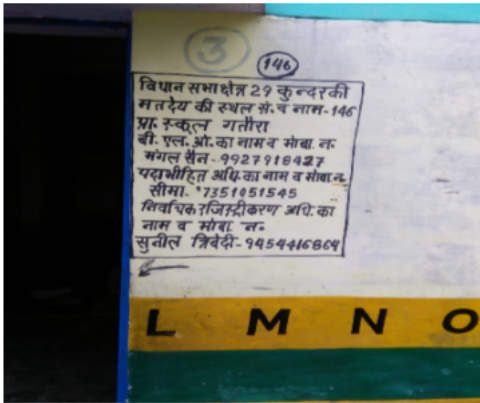 3
146
विधान सभा क्षेत्र 29 कुन्दरकी
मतदेय की स्थल सं. व नाम-146
प्रा. स्कूल गतौरा
बी. एल. ओ. का नाम व मोबा. न.
मंगल सैन-9927918427
पदाभीहित अधि. का नाम व मोबा. न.
सीमा- 7351051545
निर्वाचक रजिस्ट्रीकरण अधि. का
नाम व मोबा. न.
सुनील त्रिवेदी-9454416864
L M N O